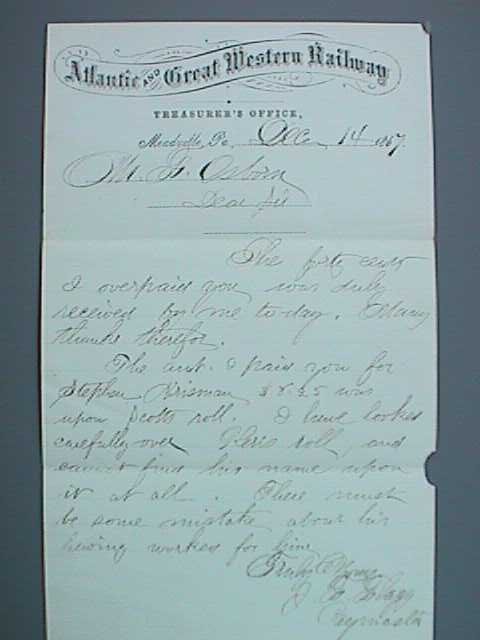 Atlantic AND Great Western Railway
TREASURER'S OFFICE,
Meadville, Pa., Dec 14 1867.
Mr. F. Osborn
Dear Sir
The fifty cents
I overpaid you was duly
received by me to-day. Many
thanks therefor.
The amt. I paid you for
Stephen Krisman $8.25 was
upon Scotts roll. I have looked
carefully over roll, and
cannot find his name upon
it at all. There must
be some mistake about his
having worked for him
Truly Yours
Paymaster